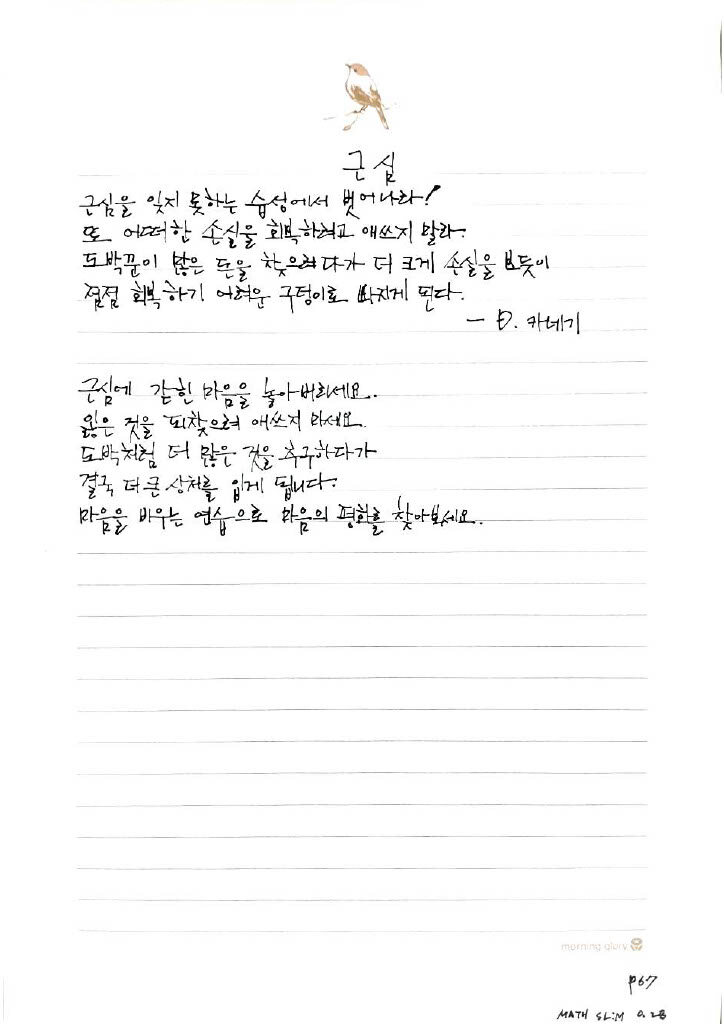 근심
근심을 잊지 못하는 습성에서 벗어나라!
또 어떠한 손실을 회복하려고 애쓰지 말라.
도박꾼이 많은 돈을 찾으려다가 더 크게 손실을 보듯이
점점 회복하기 어려운 구덩이로 빠지게 된다.
- D. 카네기
근심에 갇힌 마음을 놓아버리세요.
잃은 것을 되찾으려 애쓰지 마세요.
도박처럼 더 많은 것을 추구하다가
결국 더 큰 상처를 입게 됩니다.
마음을 비우는 연습으로 마음의 평화를 찾아보세요.
morning glory
p67
MATH SLIM 0.28